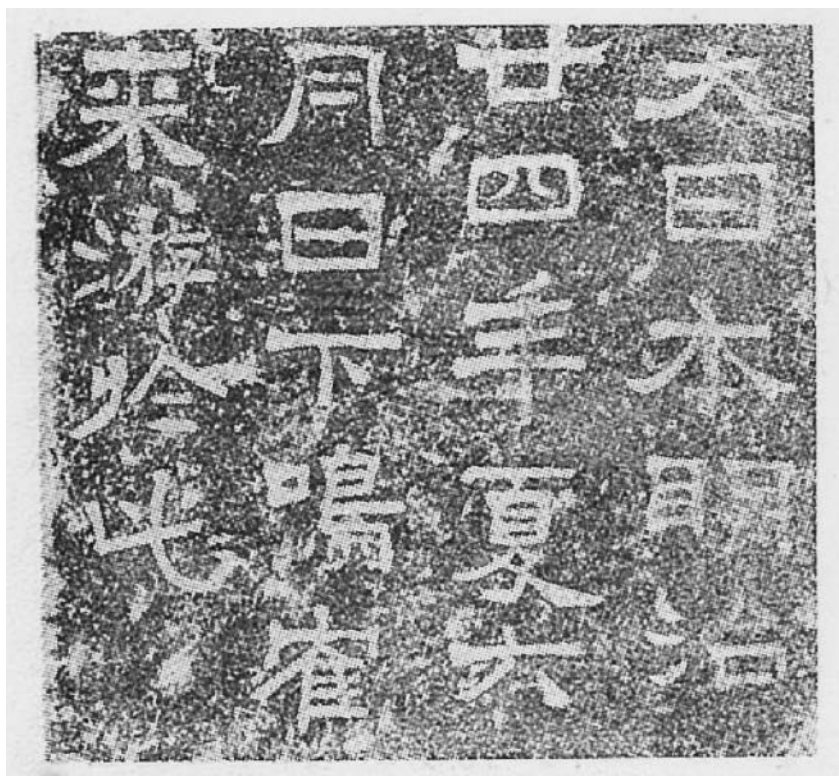 大日本明治
廿四年夏六
月日下鳴隺
来游於此